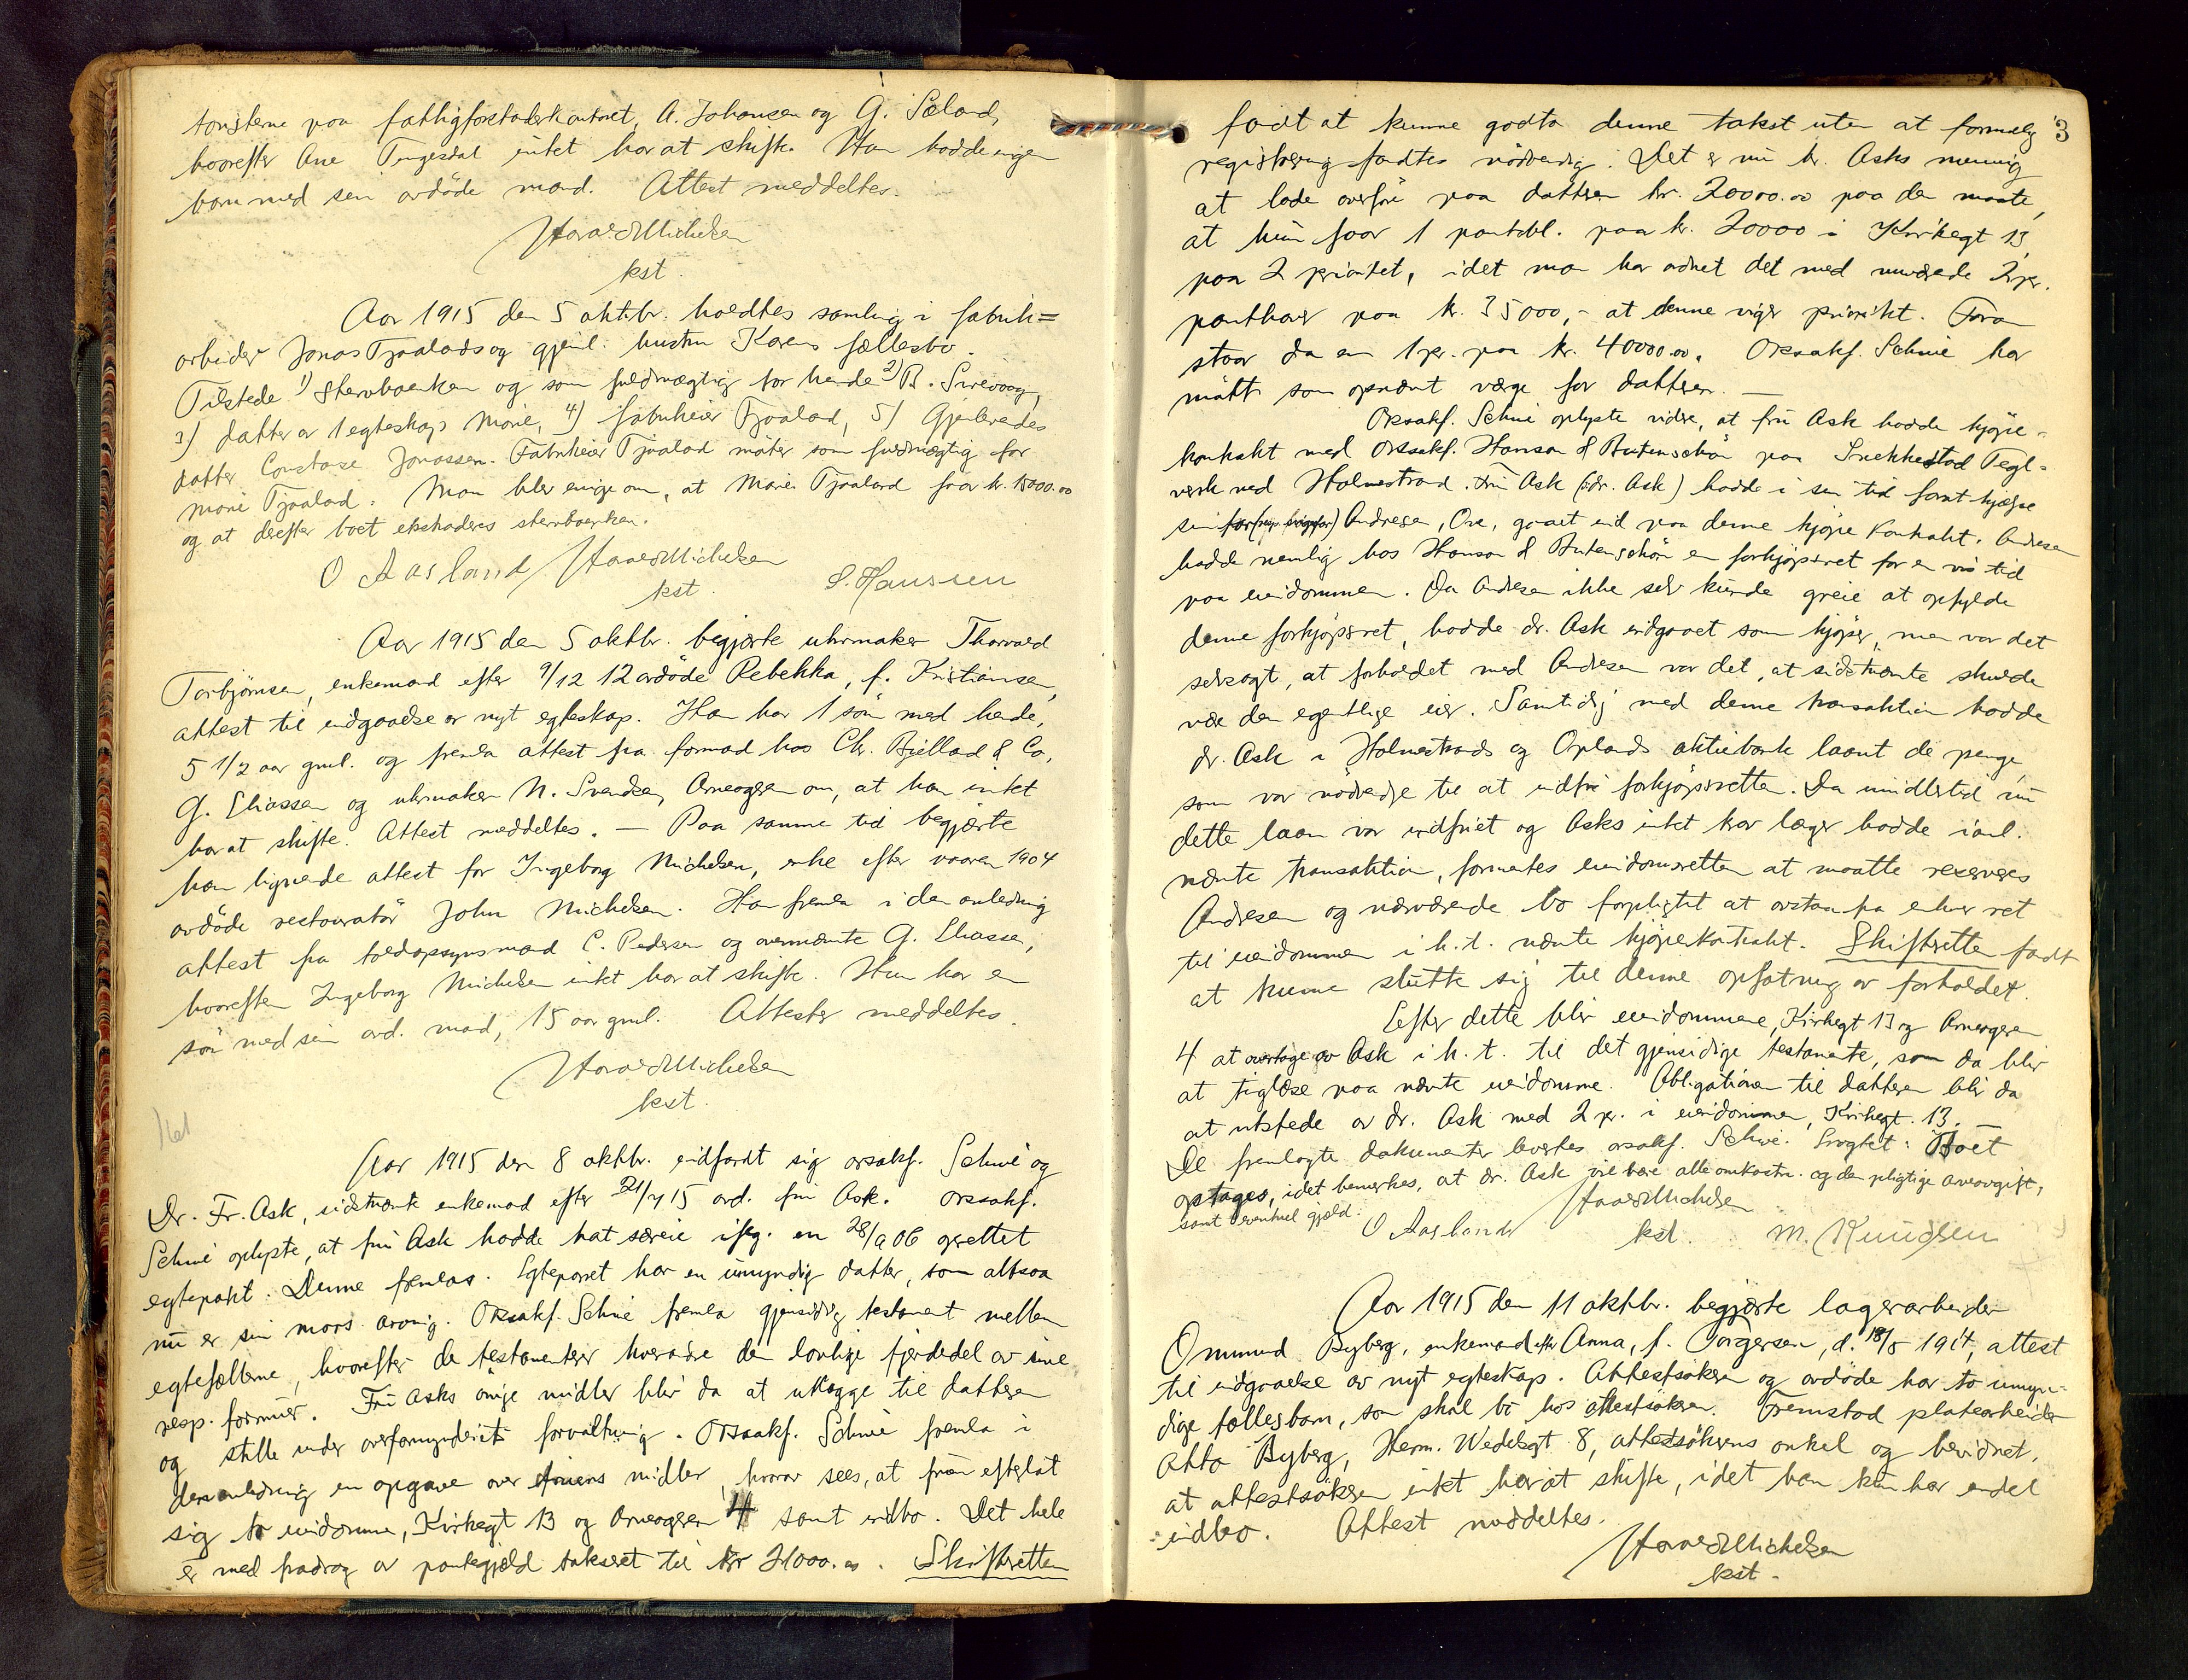 toristerne paa fattigforstanderkontoret, A. Johansen og G. Sæland,
hvorefter Ane Tengesdal intet har at skifte. Han hadde ingen
barn med sin avdöde mand. Attest meddeltes.
Harald Michelsen
kst.
Aar 1915 den 5 oktbr. holdtes samling i fabrik=
arbeider Jonas Tjaalads og gjenl. hustru Karens fællesbo.
Tilstede 1) Stervboenken og som fuldmægtig for hende 2) B. Sirevaag,
3) datter av 1 egteskap Marie, 4) fabrikeier Tjaalad, 5) Gjenlevendes
datter Constanse Jonassen. Fabrikeier Tjaalad möter som fuldmægtig for
Marie Tjaalad. Man blev enige om, at Marie Tjaaland faar kr. 15000.00
og at derefter boet ekstraderes stervboenken.
O Aasland Harald Michelsen S. Hanssen
kst.
Aar 1915 den 5 oktbr. begjærte uhrmaker Thorvald
Torbjörnsen, enkemand efter 9/12 12 avdöde Rebekka, f. Kristiansen,
attest til indgaaelse av nyt egteskap. Han har 1 sön med hende,
5 1/2 aar gml. og fremla attest fra formand hos Chr. Bjelland & Co,
G. Eliassen og uhrmaker N. Svendsen, Arneageren om, at han intet
har at skifte. Attest meddeltes. — Paa samme tid begjærte
han lignende attest for Ingeborg Michelsen, enke efter vaaren 1904
avdöde restauratör John Michelsen. Han fremla i den anledning
attest fra toldopsynsmand C. Pedersen og ovennævnte G. Eliassen,
hvorefter Ingeborg Michelsen intet har at skifte. Hun har en
sön med sin avd. mand, 15 aar gml. Attester meddeltes.
Harald Michelsen
kst.
Aar 1915 den 8 oktbr. indfandt sig orsakf. Schwé og
Dr. Fr. Ask, sidstnævnte enkemand efter 21/7 15 avd. fru Ask. Orssakf.
Schwé oplyste, at fru Ask hadde hat særeie iflg. en 28/9 06 oprettet
egtepakt. Denne fremlas. Egteparret har en umyndig datter, som altsaa
nu er sin mors arving. Orssakf. Schwé fremla gjensidig testament mellem
egtefællerne, hvorefter de testamenterer hverandre den lovlige fjerdedel av sine
resp. formuer. Fru Asks övrige midler blir da at utlægge til datteren
og stille under overformynderiets forvaltning. Orssakf. Schwé fremla i
den anledning en opgave over fruens midler, hvorav sees, at fruen efterlat
sig to eiendomme, Kirkegt 13 og Arneageren 4 samt indbo. Det hele
er med fradrag av pantegjæld takseret til kr 21000.00. Skifteretten
3
fandt at kunne godta denne takst uten at formelig
registrering fandtes nödvendig. Det er nu hr. Asks mening
at lade overföre paa datteren kr. 20000.00 paa den maate,
at hun faar 1 pantobl. paa kr. 20000 i Kirkegt 13
paa 2 prioritet, idet man har ordnet det med nuværende 2 pr.
panthaver paa kr. 35000,- at denne viger prioritet. Foran
staar da en 1 pr. paa kr. 40000.00. Orssakf. Schwé har
mött som opnævnt værge for datteren. —
Orssakf. Schwé oplyste videre, at fru Ask hadde kjöpe-
kontrakt med Orssakf. Hansson & Butenschön paa Snekkestad Tegl-
verk ved Holmestrand. Fru Ask (ɔ: dr. Ask) hadde i sin tid for at hjælpe
sin far (resp. svigerfar) Andresen, Ove, gaaet ind paa denne kjöpekontrakt. Andresen
hadde nemlig hos Hansson & Butenschön en forkjöpsret for en vis tid
paa eiendommen. Da Andresen ikke selv kunde greie at opfylde
denne forkjöpsret, hadde dr. Ask indgaaet som kjöper, men var det
selvsagt, at forholdet med Andresen var det, at sidstnævnte skulde
være den egentlige eier. Samtidig med denne transaktion hadde
dr. Ask i Holmestrands og Oplands aktiebank laant de penge,
som var nödvendige til at indfri forkjöpsretten. Da imidlertid nu
dette laan var indfriet og Asks intet krav længer hadde i anl.
nævnte transaktion, formentes eiendomsretten at maatte reserveres
Andresen og nærværende bo forpligtet at avstaa fra enhver ret
til eiendommen i h.t. nævnte kjöpekontrakt. Skifteretten fandt
at kunne slutte sig til denne opfatning av forholdet.
Efter dette blir eiendommene, Kirkegt 13 og Arneageren
4 at overtage av Ask i h.t. til det gjensidige testamente, som da blir
at tinglæse paa nævnte eiendomme. Obligationen til datteren blir da
at utstede av dr. Ask med 2 pr. i eiendommen, Kirkegt. 13. —
De fremlagte dokumenter levertes orsakf. Schwé. Sluttet: Boet
optages, idet bemerkes, at dr. Ask vil bære alle omkostn. og den pligtige arveavgift,
samt eventuel gjæld.
O Aasland Harald Michelsen
kst. M. Knudsen
Aar 1915 den 11 oktbr. begjærte lagerarbeider
Ommund Byberg, enkemand efter Anna, f. Torgersen, d. 18/5 1914, attest
til indgaaelse av nyt egteskap. Attestsökeren og avdöde har to umyn-
dige fællesbarn, som skal bo hos attestsökeren. Fremstod platearbeider
Otto Byberg, Herm. Wedelsgt 8, attestsökerens onkel og bevidnet,
at attestsökeren intet har at skifte, idet han kun har endel
indbo. Attest meddeltes.
Harald Michelsen
kst.